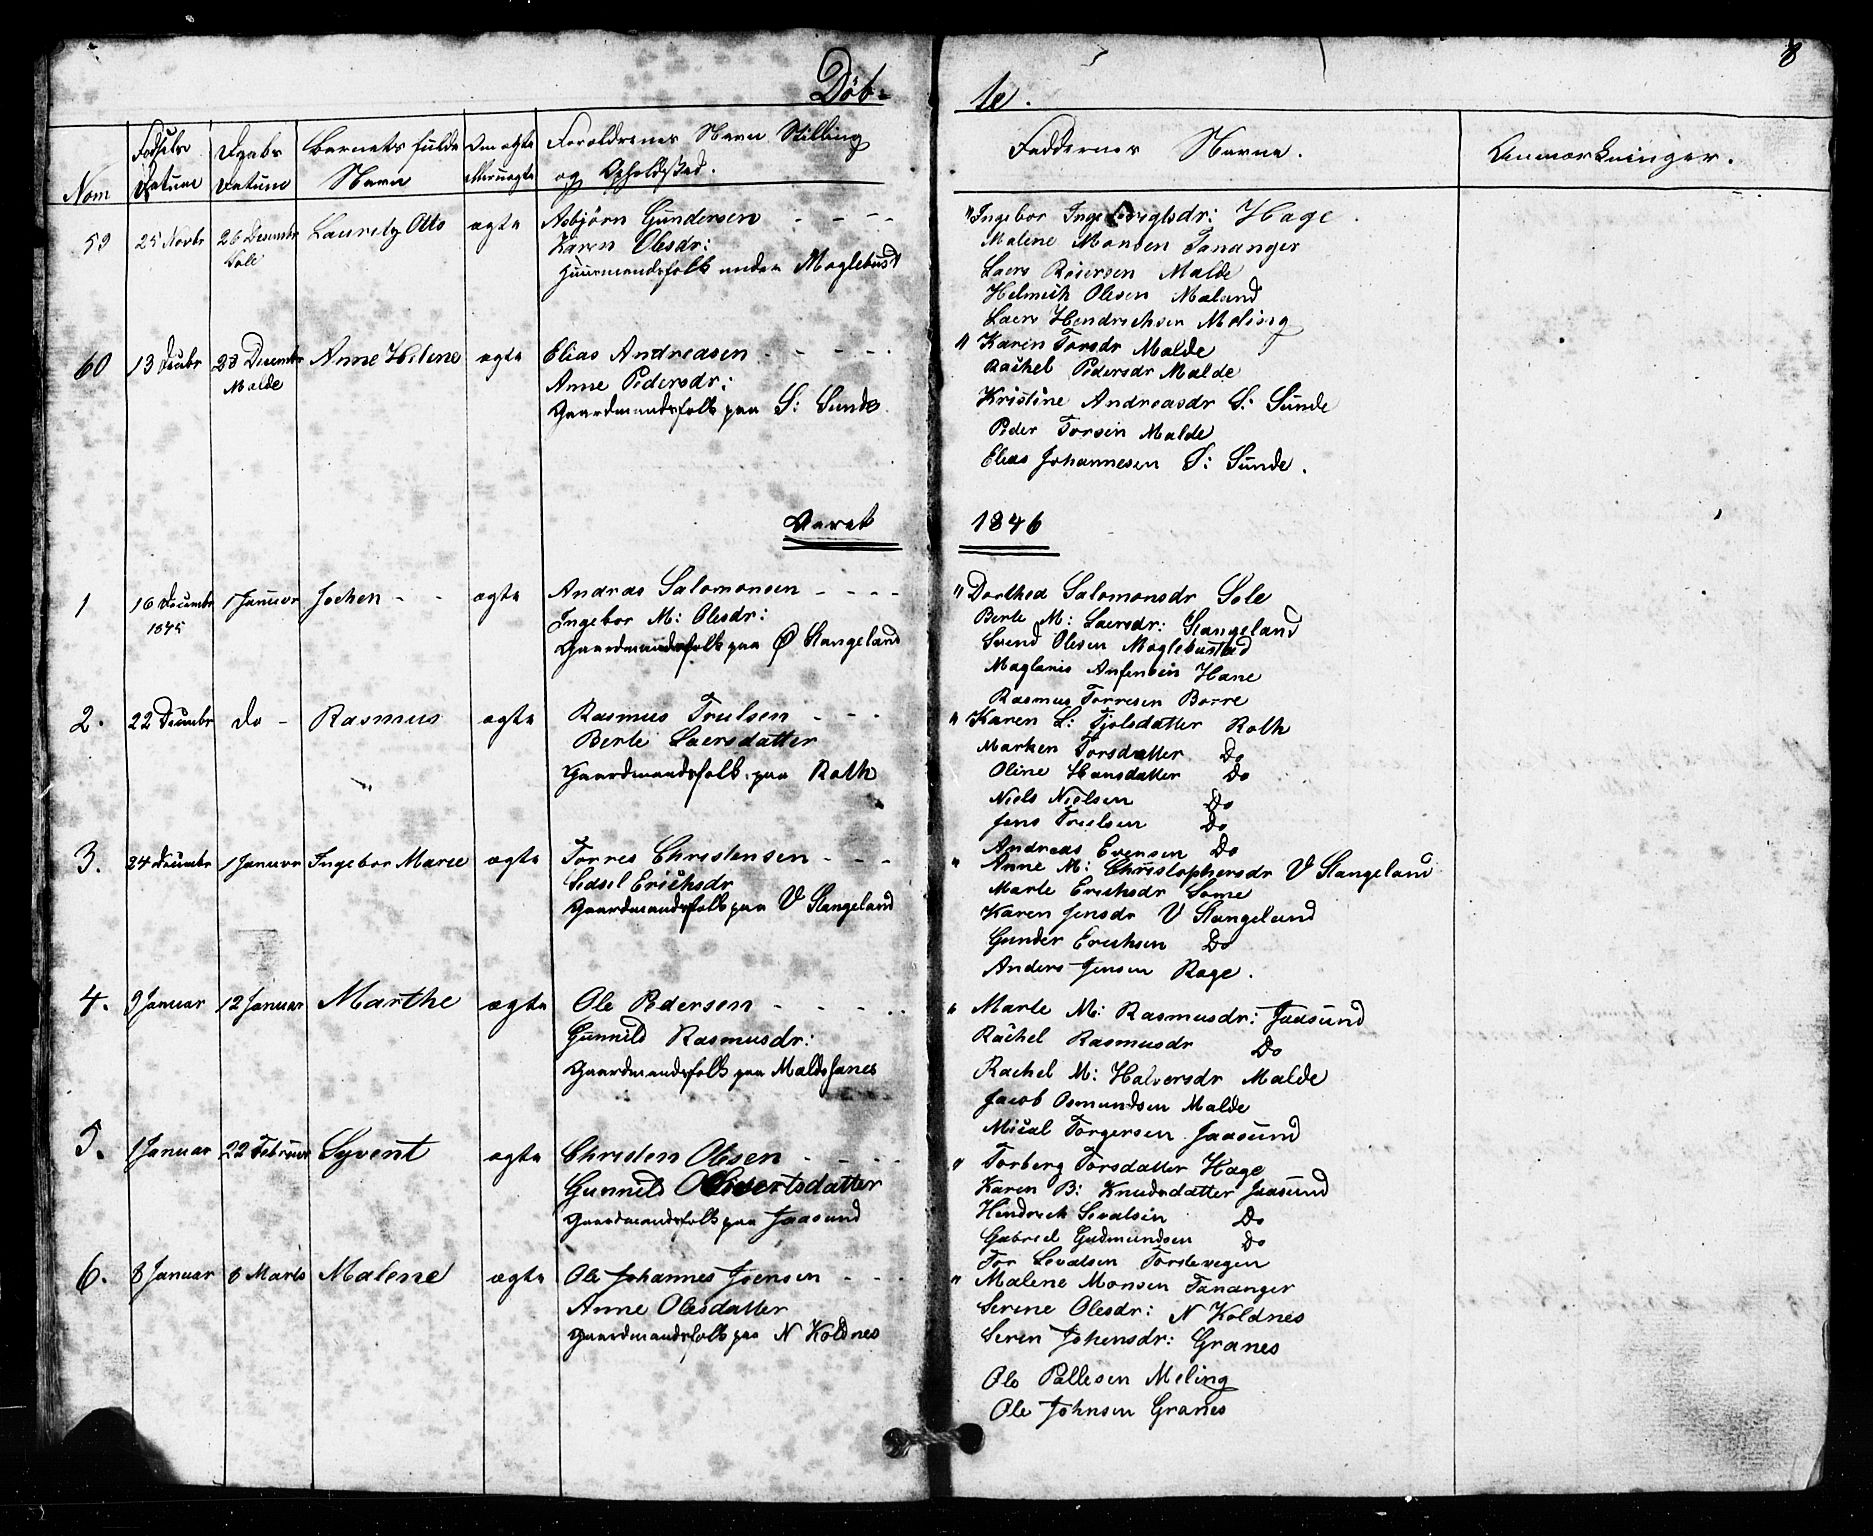 8
Døb-
te.
Nom
Fødsels Datum
Daabs Datum
Barnets fulde Navn
Om ægte eller uægte
Forældrenes Navn Stilling og Opholdsted.
Faddernes Navne.
Anmærkninger.
59 25 Novbr 26 Decembr Sole Lauretz Otto ægte
Asbjörn Gundersen
Karen Olesdr:
Huusmandsfolk under Moglebust
" Ingebor Hage
Malene Monsen Tananger
Laers Reiersen Malde
Helmich Olesen Meland
Laers Hendrichsen Meling
60 13 Decbr 28 Decembr Malde Anne Helene ægte
Elias Andreasen
Anne Pedersdr:
Gaardmandsfolk paa S: Sunde
" Karen Torsdr Malde
Rachel Pedersdr Malde
Kristine Andreasdr S: Sunde
Peder Torsen Malde
Elias Johannesen S: Sunde.
Aaret 1846
1 16 Decembr 1845 1 Januar Jochen ægte
Andras Salomonsen
Ingebor M: Olesdr:
Gaardmandsfolk paa Ø Stangeland
" Dorthea Salomonsdr Sole
Berte M: Laersdr: Stangeland
Svend Olesen Moglebustad
Maglanis Anfensen Hane
Rasmus Torresen Borre
2. 22 Decembr do - Rasmus ægte
Rasmus Trulsen
Berte Laersdatter
Gaardmandsfolk paa Roth
" Karen L: Tjolsdatter Roth
Marken Torsdatter Do
Oline Hansdatter Do
Niels Nielsen Do
Jens Trulsen Do
Andreas Evensen Do
3. 24 Decembr 1 Januar Ingebor Marie ægte
Torres Christensen
Sidsel Erichsdr
Gaardmandsfolk paa V Stangeland
" Anne M: Christophersdr V Stangeland
Marte Erichsdr Some
Karen Jensdr V Stangeland
Gunder Erichsen Do
Anders Jensen Rage.
4. 9 Januar 12 Januar Marthe ægte
Ole Pedersen
Gunnild Rasmusdr:
Gaardmandsfolk paa Maldesanes
" Marte M: Rasmusdr: Jaasund
Rachel Rasmusdr Do
Rachel M: Halversdr Malde
Jacob Osmundsen Malde
Mical Torgersen Jaasund
5. 1 Januar 22 Februar Syvent ægte
Christen Olesen
Gunnild Olivertsdatter
Gaardmandsfolk paa Jaasund
" Torberg Torsdatter Hage
Karen B: Knudsdatter Jaasund
Hendrich Sivalsen Do
Gabriel Gudmundsen Do
Tor Sivalsen Torstevegen
6. 8 Januar 8 Marts Malene ægte
Ole Johannes Joensen
Anne Olesdatter
Gaardmandsfolk paa N Koldnes
" Malene Monsen Tananger
Serine Olesdr: N Koldnes
Seren Johensdr: Granes
Ole Pallesen Meling
Ole Johnsen Granes